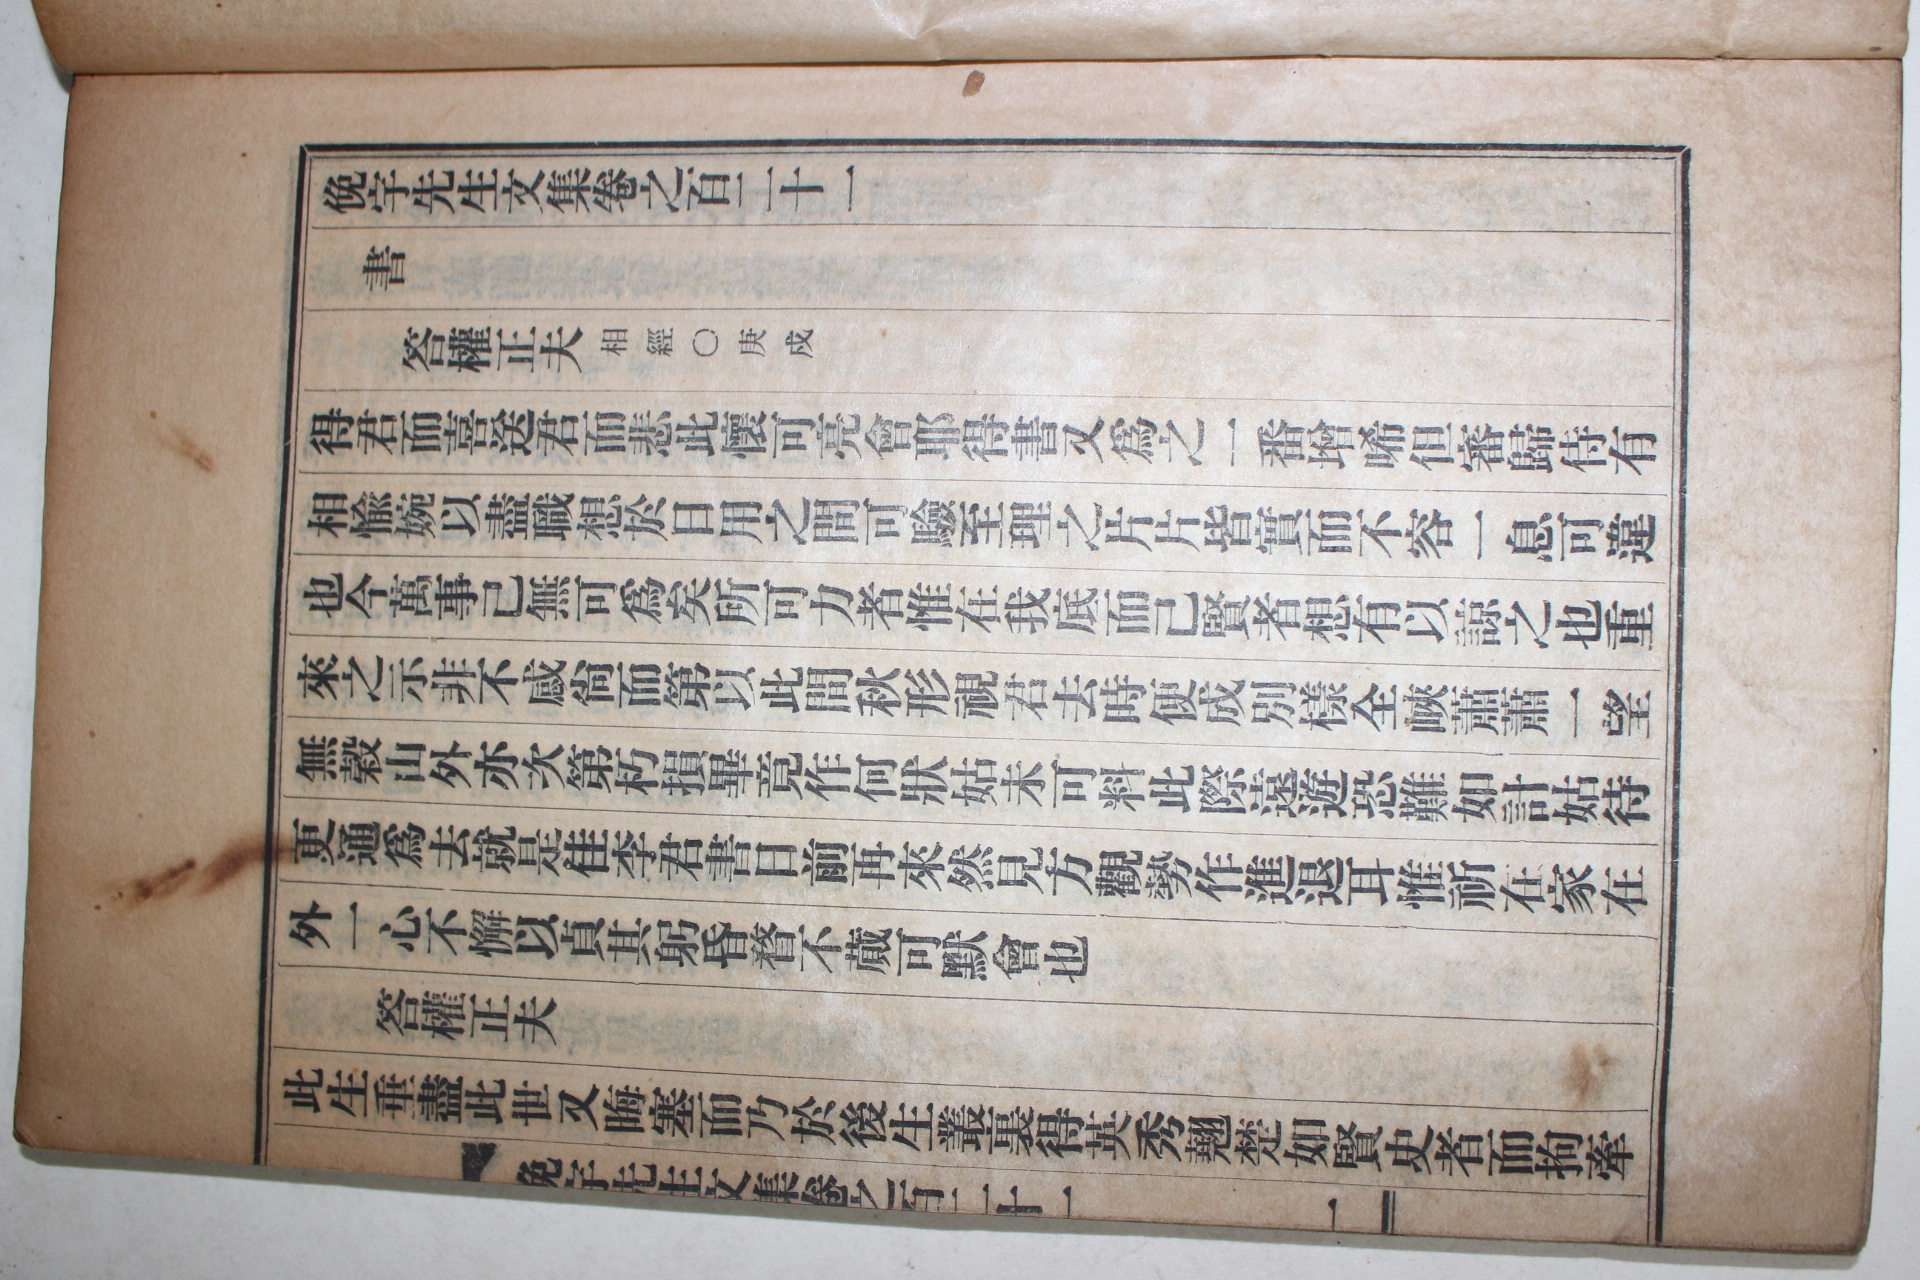 俛宇先生文集卷之百二十一
書
答權正夫 相經○庚戌
得君而喜送君而悲此懷可亮會耶得書又爲之一番增唏但審歸侍有
相愉婉以盡職想於日用之間可驗至理之片片皆實而不容一息可違
也今萬事已無可爲矣所可力者惟在我底而已賢者想有以諒之也重
來之示非不感尙而第以此間秋形視君去時便成別樣全峽蕭蕭一望
無穀山外亦次第朽損畢竟作何狀姑未可料此際遠遊恐難如計姑待
更通爲去就是佳李君書日前再來然見方觀勢作進退耳惟祈在家在
外一心不懈以貞其躬昏瞀不蕆可默會也
答權正夫
此生垂盡此世又晦塞而乃於後生叢裏得英秀翹楚如賢史者而拘牽
俛宇先生文集卷之百二十一 一